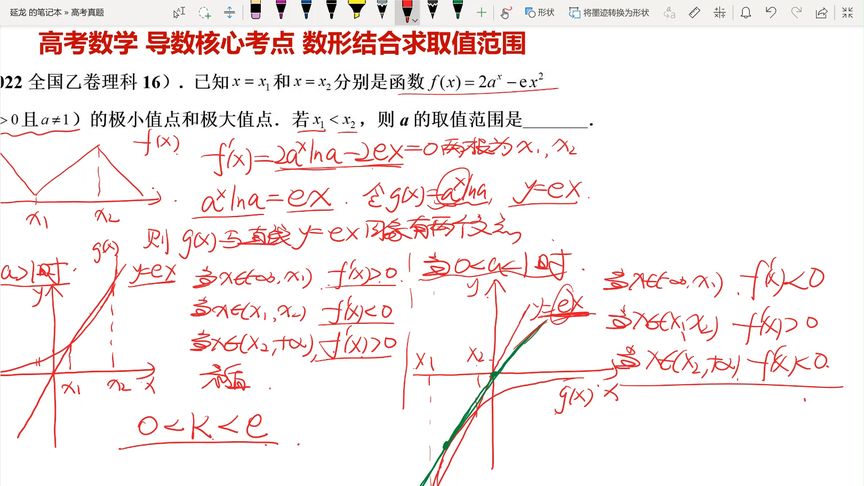 延龙 的笔记本 » 高考真题
形状
将墨迹转换为形状
高考数学 导数核心考点 数形结合求取值范围
022 全国乙卷理科 16）. 已知 x = x₁ 和 x = x₂ 分别是函数 f(x) = 2aˣ − ex²
> 0 且 a ≠ 1）的极小值点和极大值点. 若 x₁ < x₂ ，则 a 的取值范围是________.
f(x)
f'(x)=2aˣlna-2ex=0 两根为 x₁, x₂
aˣlna=ex. 令g(x)=aˣlna, y=ex.
x₁ x₂
则 g(x)与直线 y=ex 图象有两个交点
a>1时.
g(x)
y=ex
y
x₁ x₂ x
当x∈(-∞, x₁) f'(x)>0
当x∈(x₁, x₂) f'(x)<0
当x∈(x₂, +∞), f'(x)>0
0<k<e
当0<a<1时.
y
y=ex
x₁ x₂
g(x) x
当x∈(-∞, x₁) f'(x)<0
当x∈(x₁, x₂) f'(x)>0
当x∈(x₂, +∞) f'(x)<0.